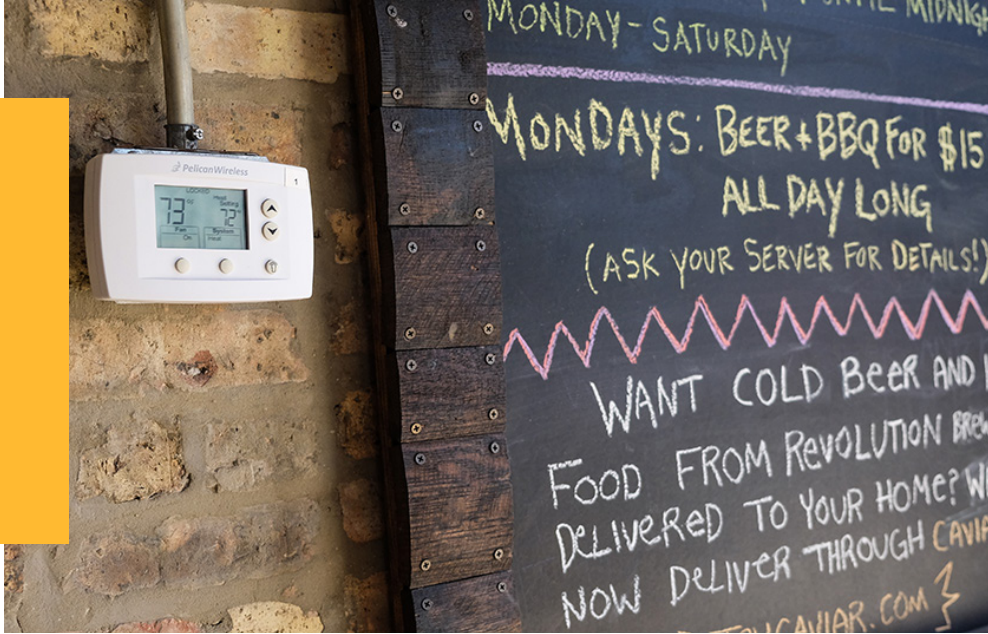 PelicanWireless
1
LOCKED
73°F
Heat
Setting
72°
Fan
On
System
Heat
MIDNIGH
MONDAY-SATURDAY
MONDAYS: BEER+BBQ FOR $15
ALL DAY LONG
(ASK YOUR SERVER FOR DETAILS!)
WANT COLD BEER AND
FOOD FROM REVOLUTION BREW
DELIVERED TO YOUR HOME? WE
NOW DELIVER THROUGH CAVIA
CAVIAR.COM }